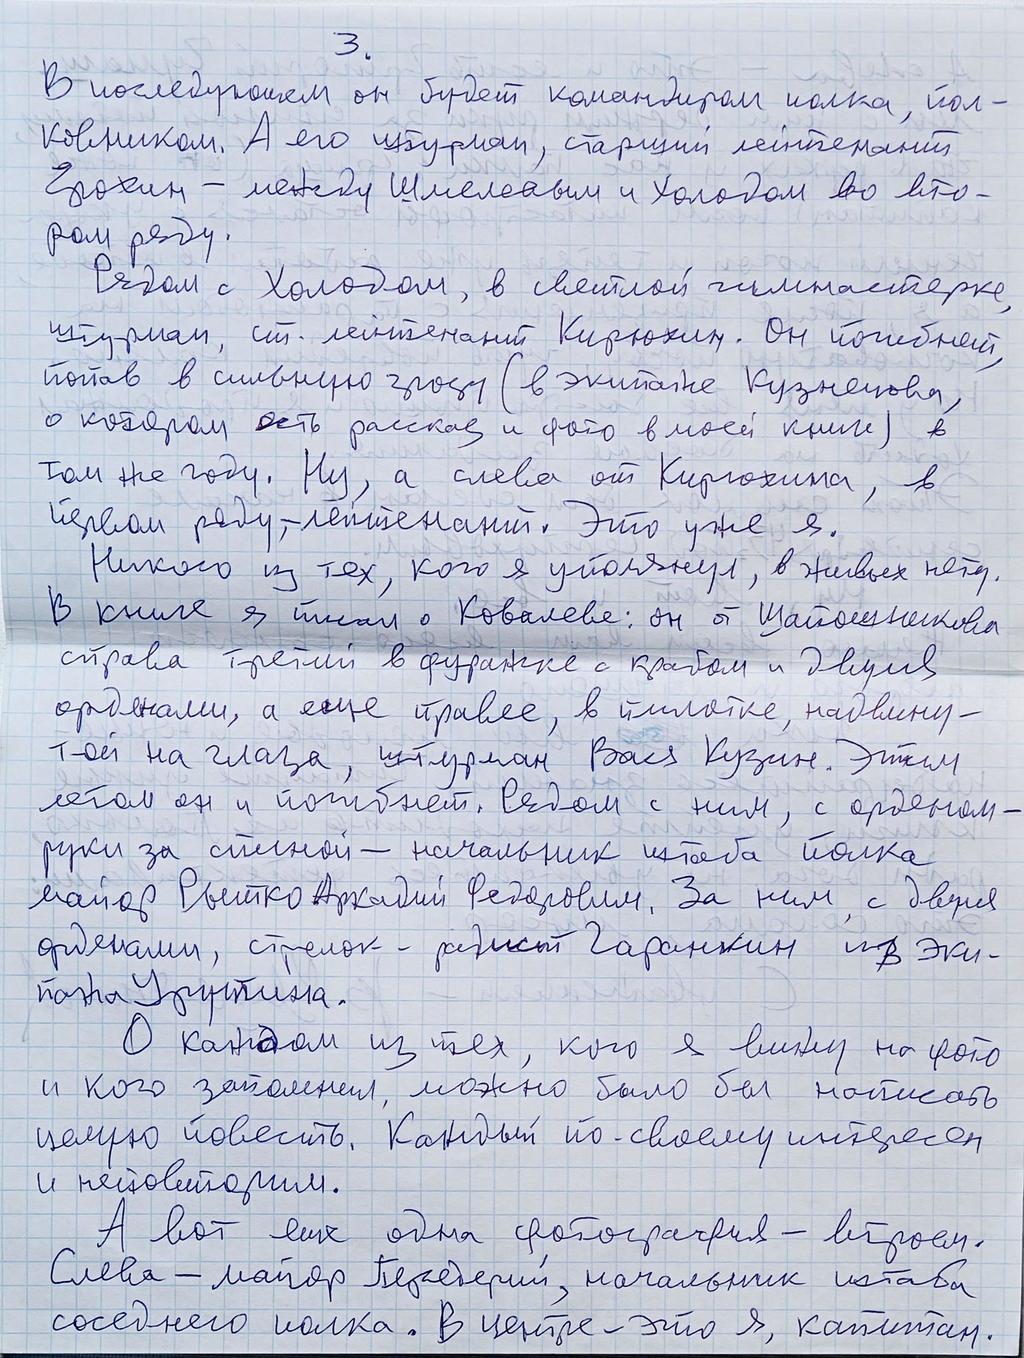 3.
В последующем он будет командиром полка, пол-
ковником. А его штурман, старший лейтенант
Ерохин – между Шмелевым и Холодом во вто-
ром ряду.
Рядом с Холодом, в светлой гимнастерке,
штурман, ст. лейтенант Кирюхин. Он погибнет,
попав в сильную грозу (в экипаже Кузнецова,
о котором есть рассказ и фото в моей книге) в
том же году. Ну, а слева от Кирюхина, в
первом ряду, – лейтенант. Это уже я.
Никого из тех, кого я упомянул, в живых нету.
В книге я писал о Ковалеве: он от Шапошникова
справа третий в фуражке с крабом и двумя
орденами, а еще правее, в пилотке, надвину-
той на глаза, штурман Вася Кузин. Этим
летом он и погибнет. Рядом с ним, с орденом –
руки за спиной – начальник штаба полка
майор Рытко Аркадий Федорович. За ним, с двумя
орденами, стрелок-радист Гаранкин из эки-
пажа Урутина.
О каждом из тех, кого я вижу на фото
и кого запомнил, можно было бы написать
целую повесть. Каждый по-своему интересен
и неповторим.
А вот еще одна фотография – втроем.
Слева – майор Передерий, начальник штаба
соседнего полка. В центре – это я, капитан.